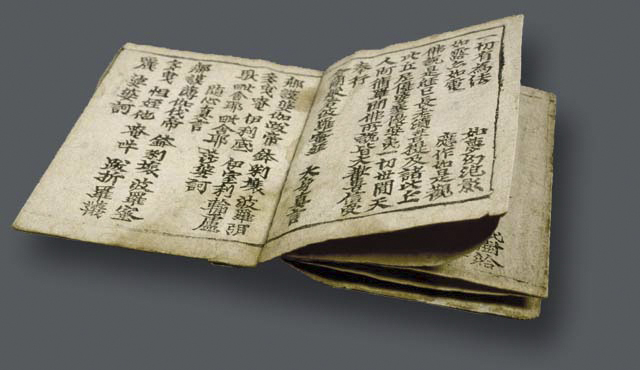 一切有為法 如夢幻泡影
如露亦如電 應作如是觀
佛說是經已長老須菩提及諸比丘
比丘尼優婆塞優婆夷一切世間天
人阿修羅聞佛所說皆大歡喜信受
奉行
般若波羅蜜經 大身真言
那謨婆伽跋帝 鉢剌壤 波羅弭
多曳唵 伊利底 伊室利 輸盧
毗舍耶毗舍耶 莎婆訶
隨心真言
那謨婆伐帝 鉢剌壤 波羅蜜
多曳 怛姪他 唵吽 跋折羅
羅 莎婆訶
樹給